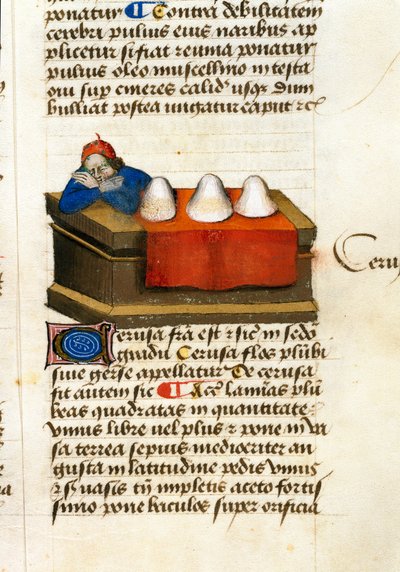 ponatur ¶ Contra debilitatem
cerebri puluis eius naribus ap
plicetur si fiat reuma ponatur
puluis oleo muscellino in testa
qui sup cineres calid usqz dum
bulliat postea ungatur caput
Cerusa
Cerusa fra est sic in sedo
gradu Cerusa flos plubi
siue gersa appellatur De cerusa
fit autem sic ¶ Acc laminas plu
beas quadratas in quantitate
vnius libre uel plus pone in va
sa terrea sepius mediocriter an
gusta in latitudine pedis vnius
uasis impletis aceto fortis
simo pone baculos super orificia